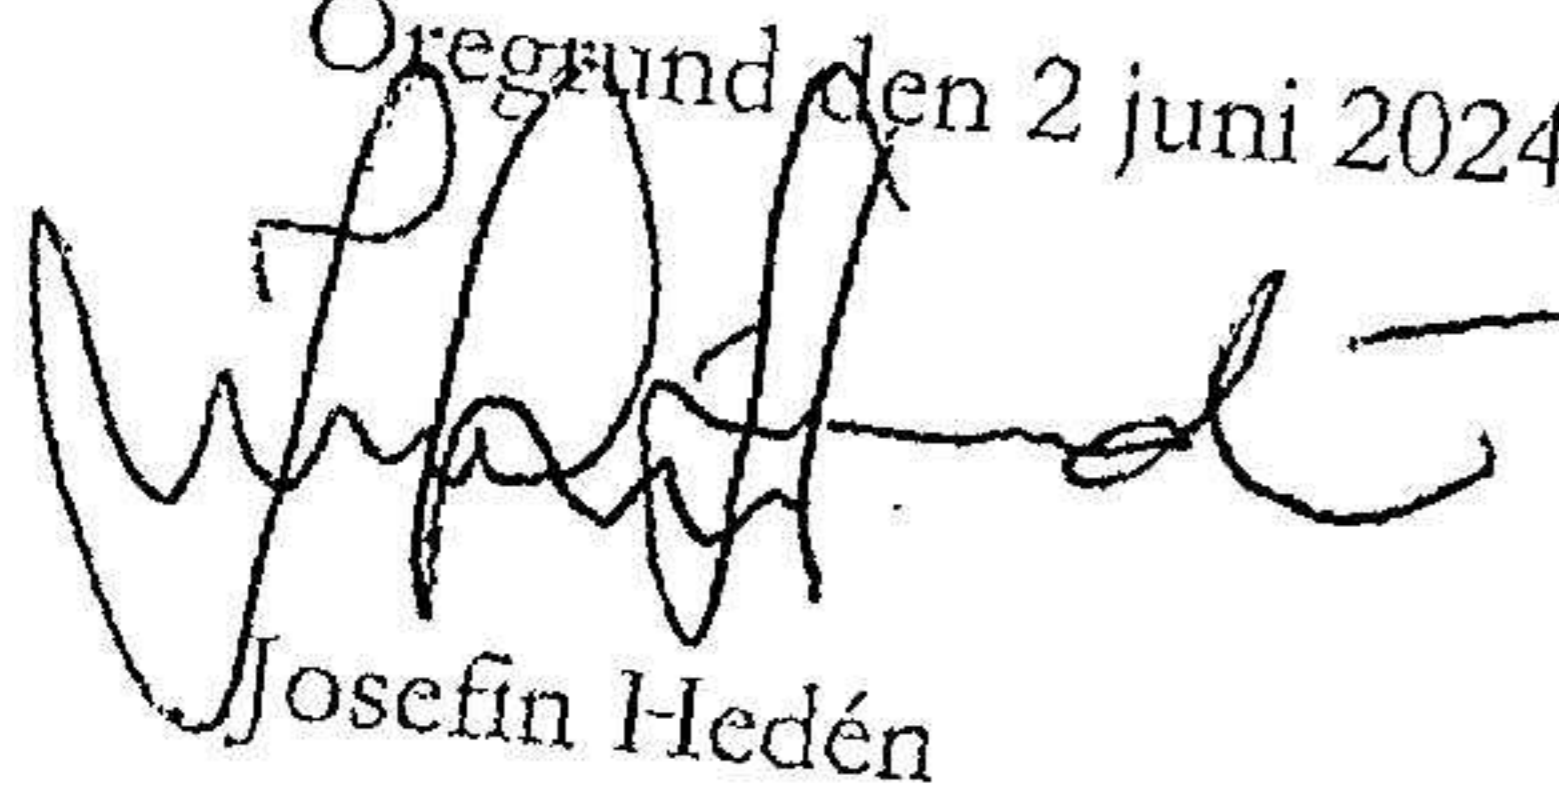 Öregrund den 2 juni 2024
Josefin Hedén